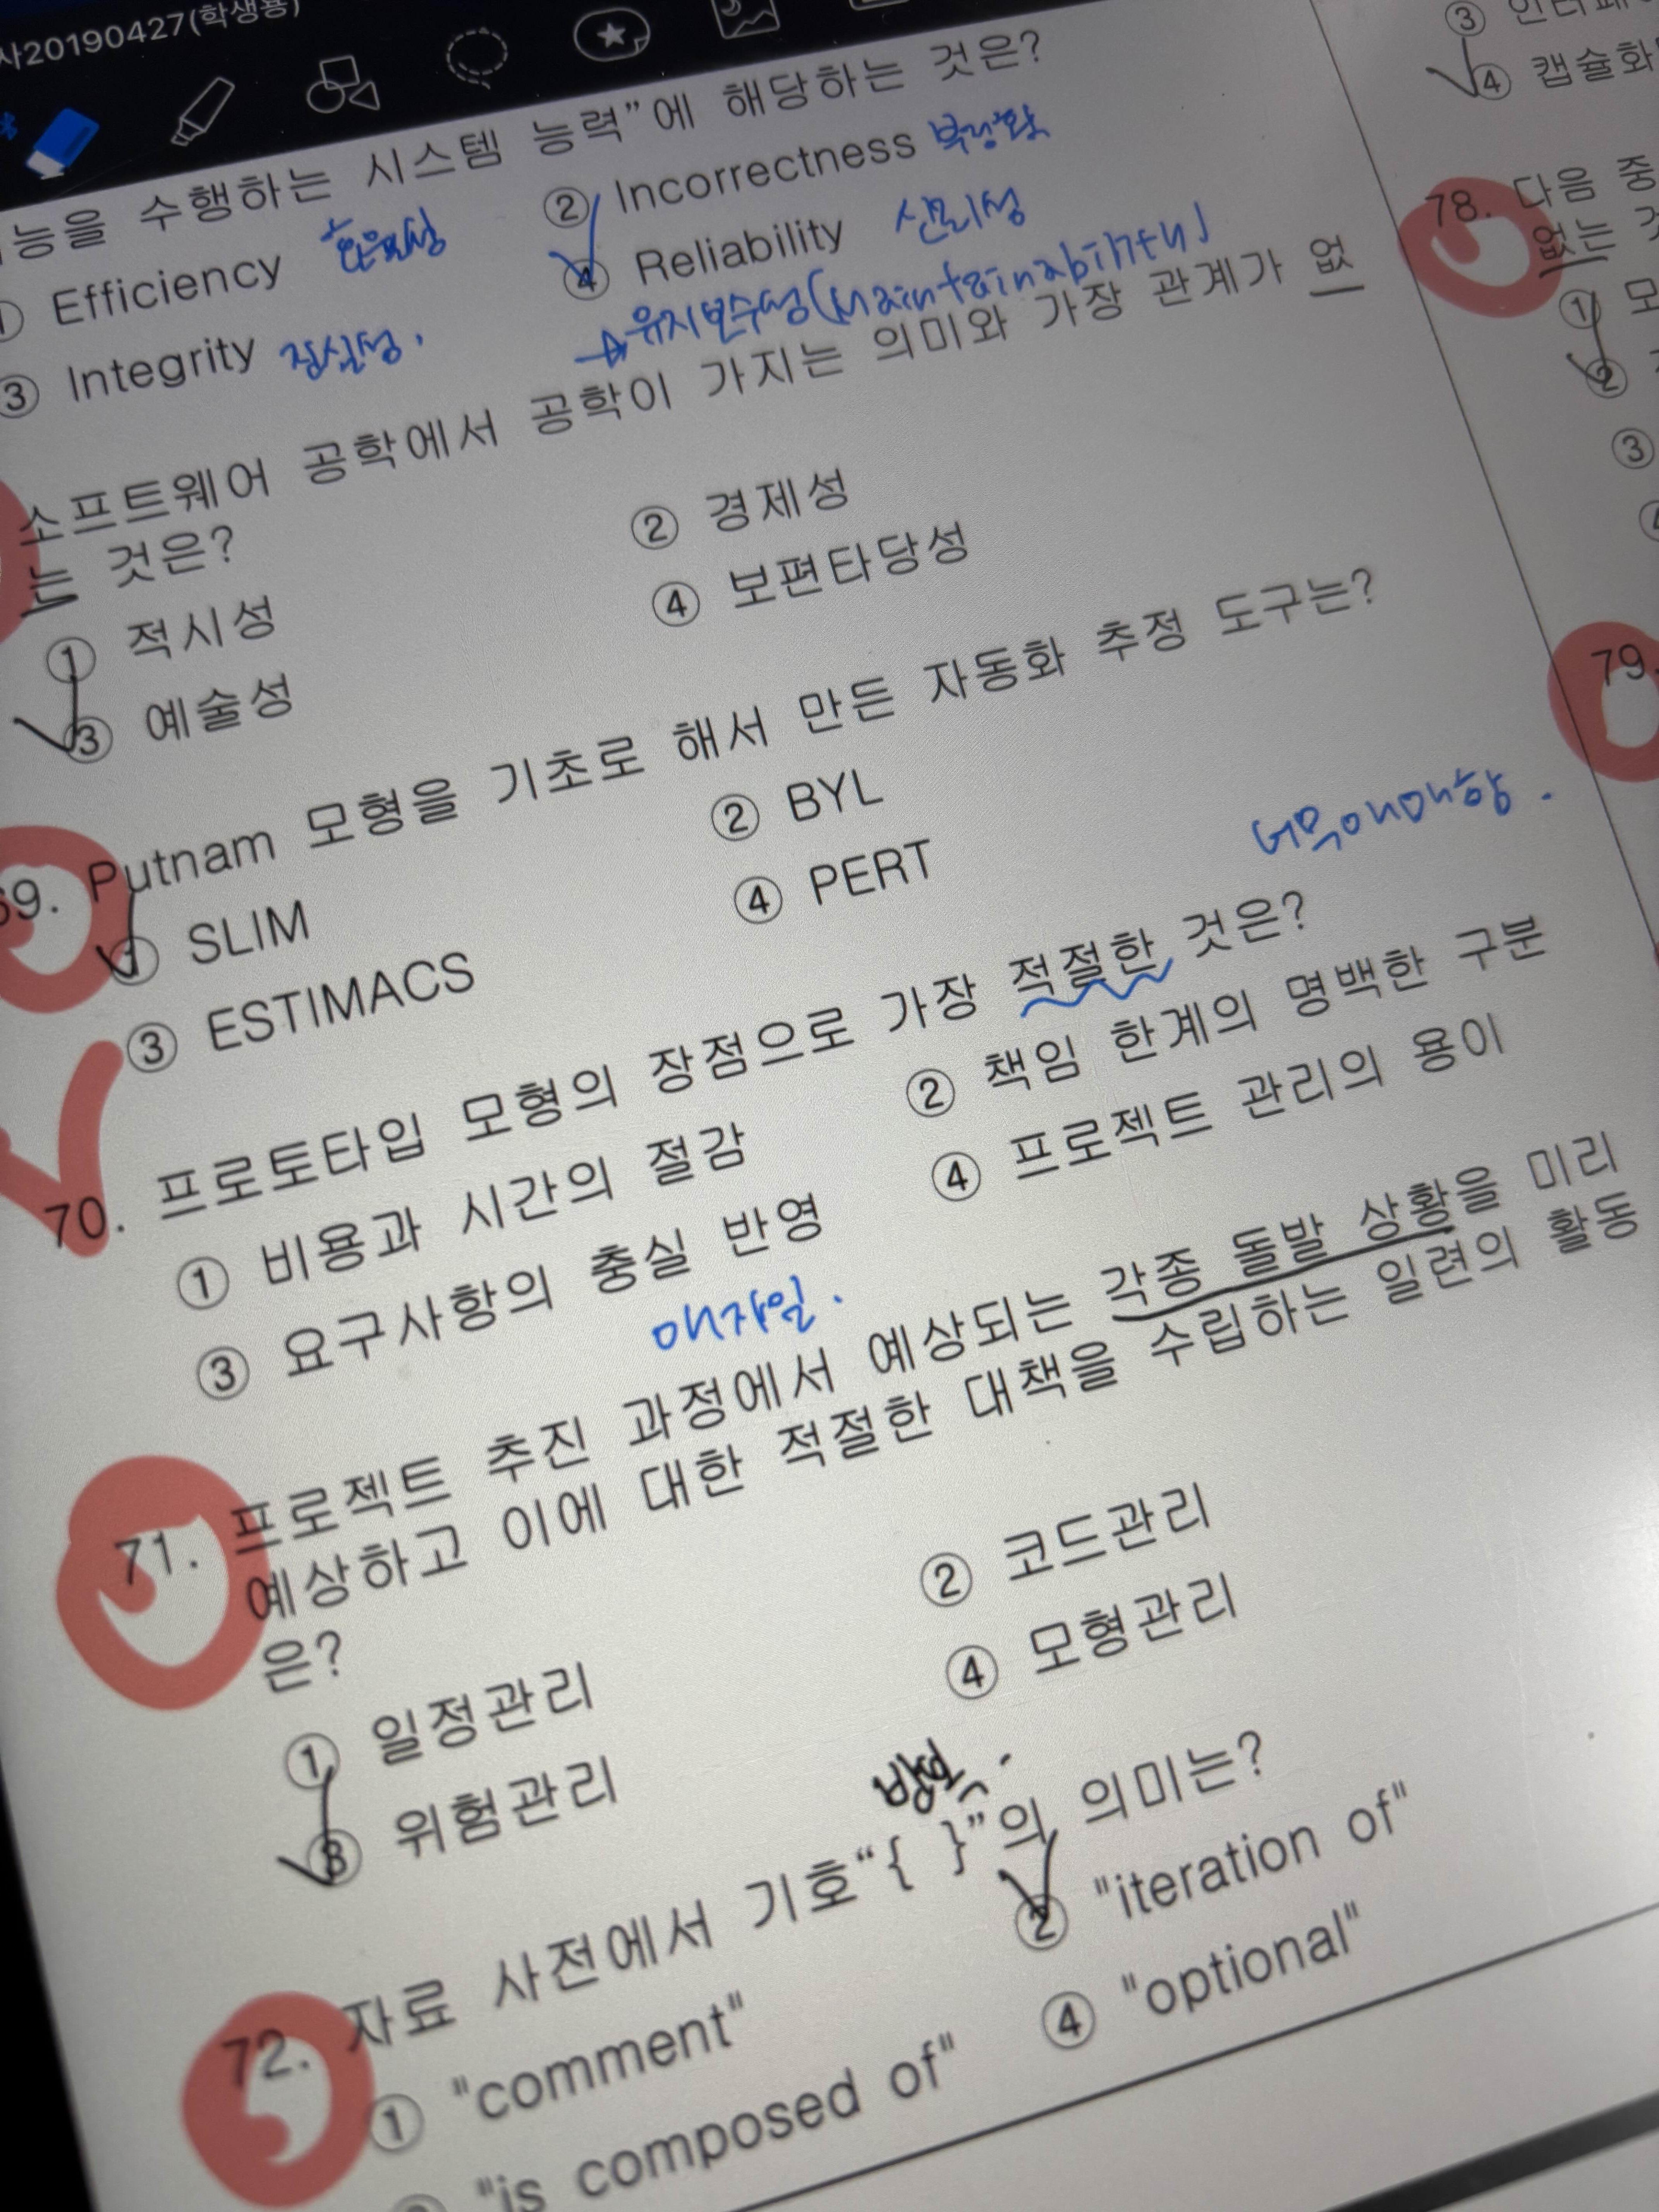 사20190427(학생용)
능을 수행하는 시스템 능력”에 해당하는 것은?
① Efficiency 효율성
② Incorrectness 부정확
③ Integrity
④ Reliability 신뢰성
→ 유지보수성(Maintainability)
소프트웨어 공학에서 공학이 가지는 의미와 가장 관계가 없
는 것은?
① 적시성
② 경제성
③ 예술성
④ 보편타당성
69. Putnam 모형을 기초로 해서 만든 자동화 추정 도구는?
① SLIM
② BYL
③ ESTIMACS
④ PERT
너무애매함.
70. 프로토타입 모형의 장점으로 가장 적절한 것은?
① 비용과 시간의 절감
② 책임 한계의 명백한 구분
③ 요구사항의 충실 반영
④ 프로젝트 관리의 용이
애자일.
71. 프로젝트 추진 과정에서 예상되는 각종 돌발 상황을 미리
예상하고 이에 대한 적절한 대책을 수립하는 일련의 활동
은?
① 일정관리
② 코드관리
③ 위험관리
④ 모형관리
72. 자료 사전에서 기호“{ }”의 의미는?
① "comment"
② "iteration of"
"is composed of"
④ "optional"
③
④ 캡슐화
78. 다음 중
없는
①
②
③
79.